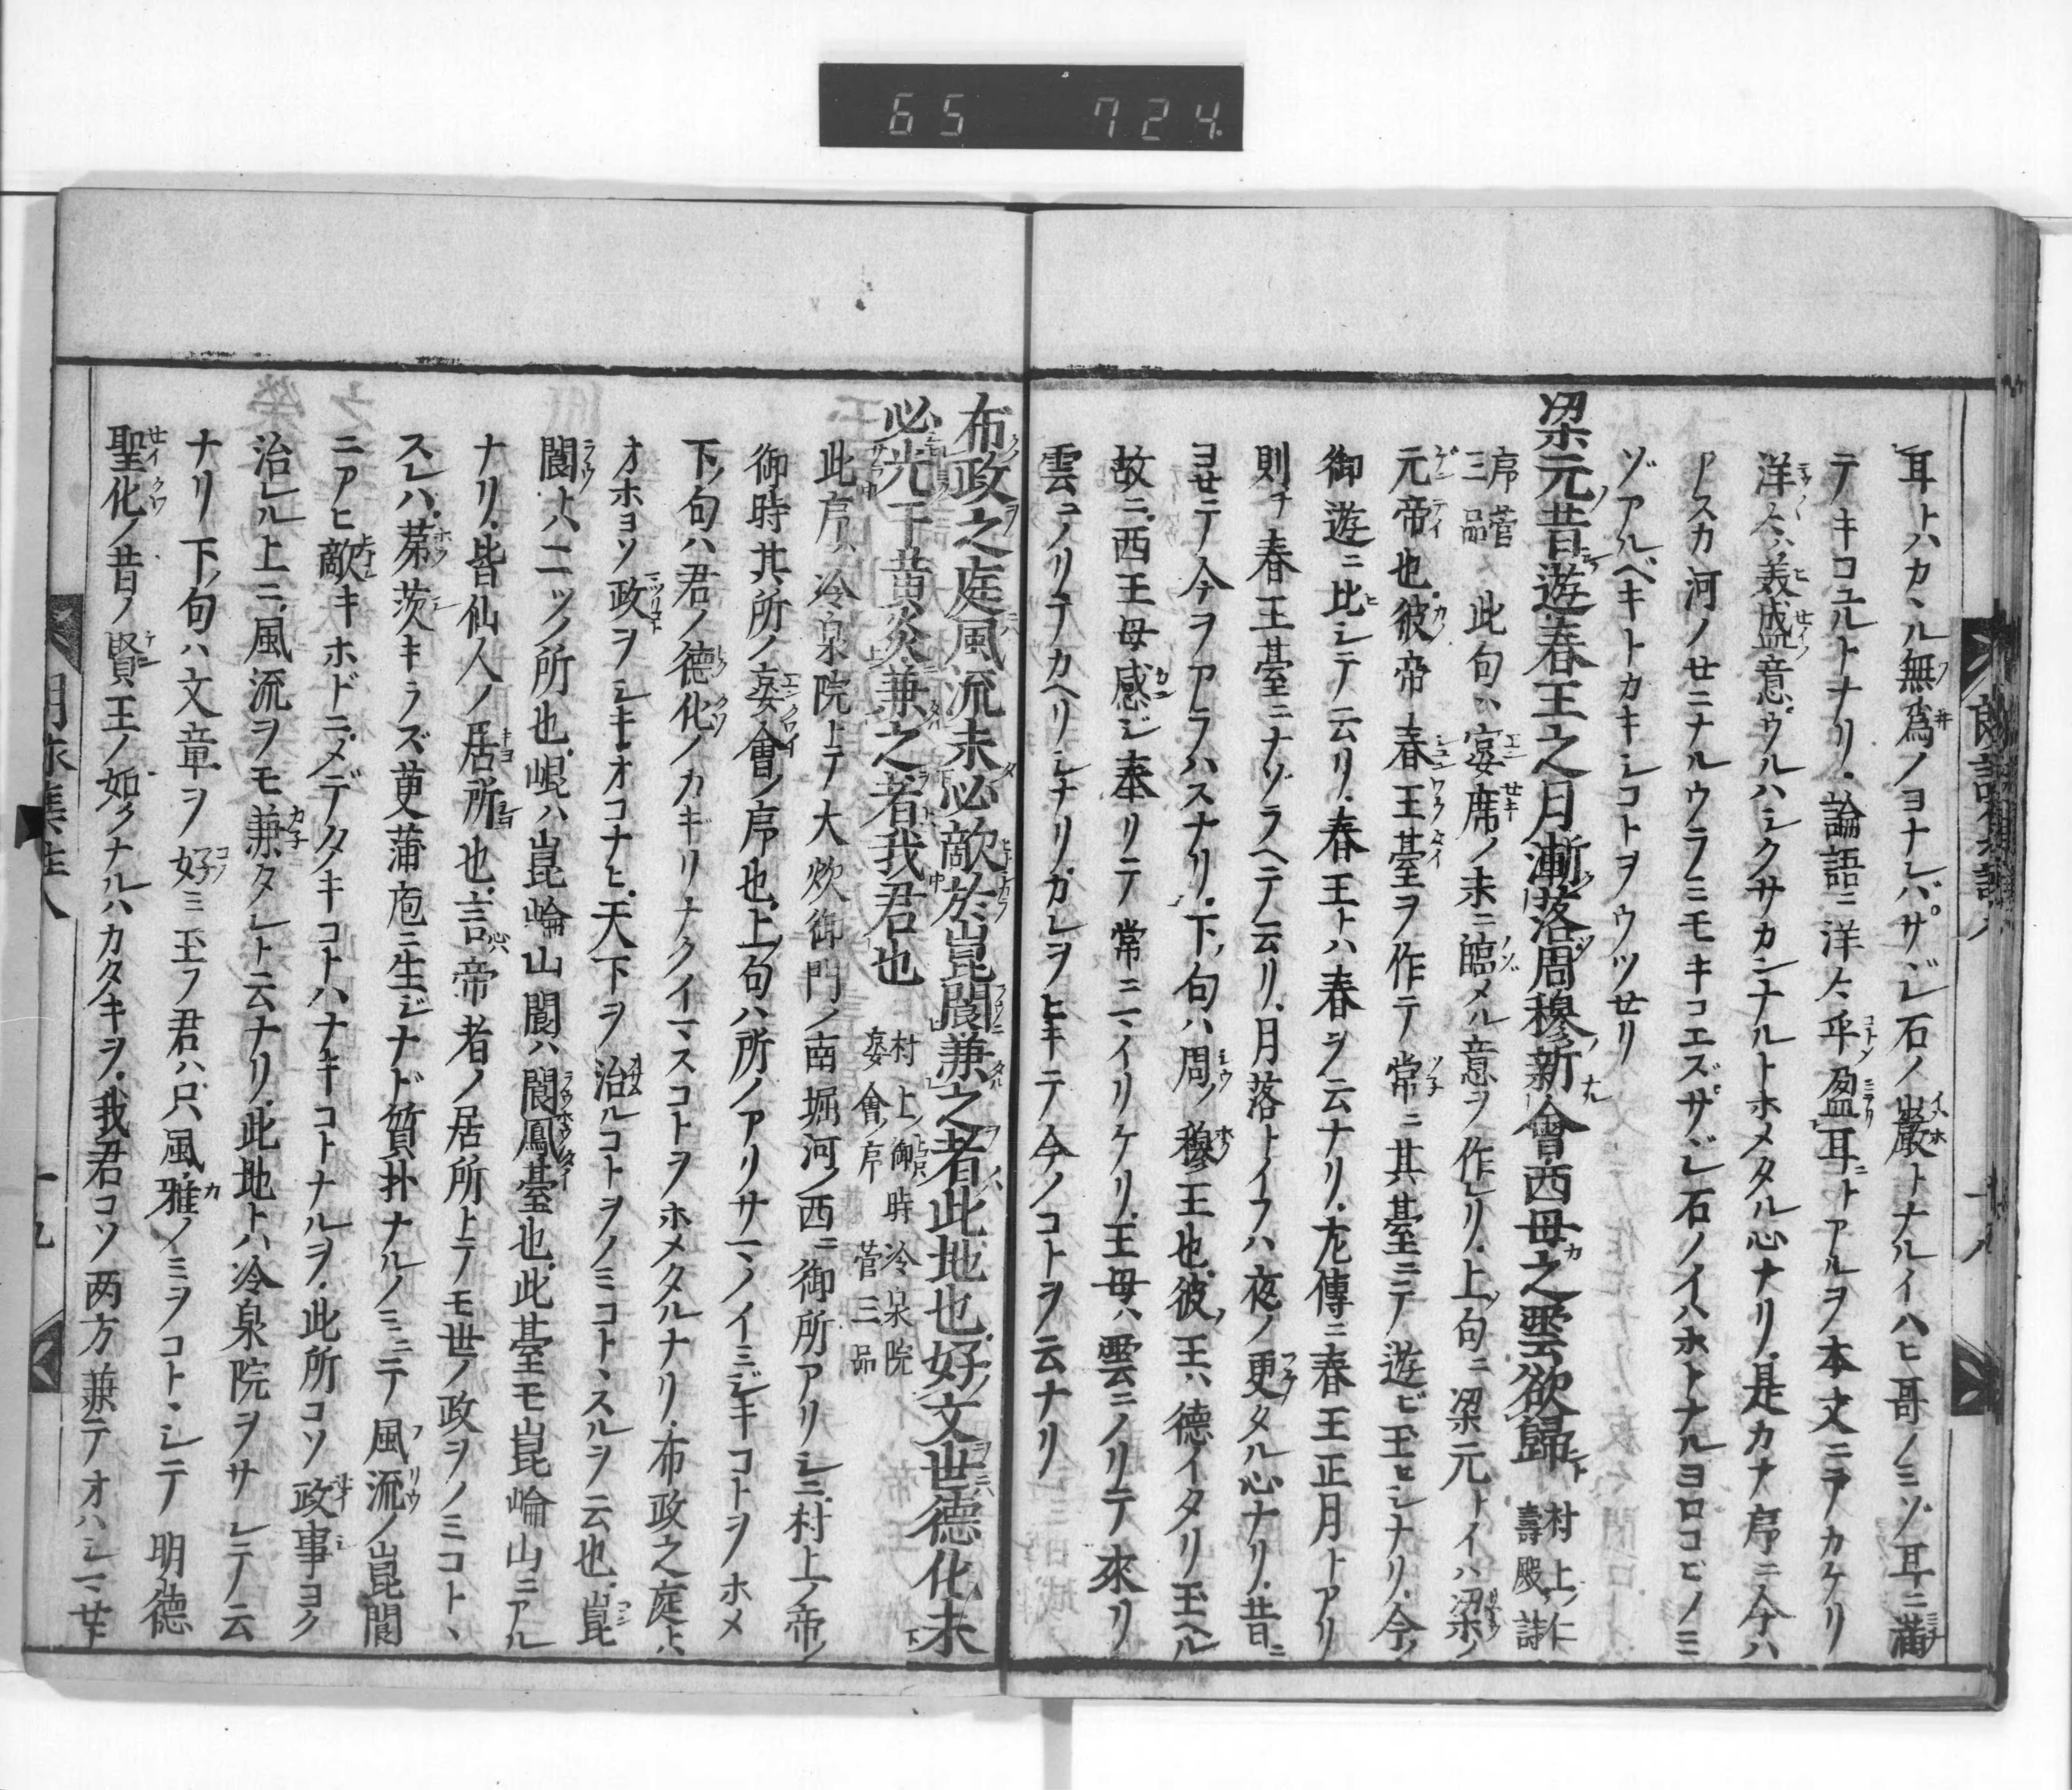 65 724
耳トハカヽル無爲ノヨナレバサヾレ石ノ巖トナルイハヒ哥ノミゾ耳ニ満
テキコユルトナリ論語ニ洋々乎盈耳トアルヲ本文ニテカケリ
洋々ハ義盛意ウルハシクサカンナルトホメタル心ナリ是カナ序ニ今ハ
アスカ河ノセニナルウラミモキコエズサヾレ石ノイハホトナルヨロコビノミ
ゾアルベキトカキシコトヲウツセリ
梁元昔遊春王之月漸落周穆新會西母之雲欲歸 村上仁壽殿詩序菅三品
此句ハ宴席ノ末ニ臨メル意ヲ作レリ上句ニ梁元トイハ梁ノ
元帝也彼帝春王臺ヲ作テ常ニ其臺ニテ遊ビ玉ヒシナリ今ノ
御遊ニ比シテ云リ春王トハ春ヲ云ナリ左傳ニ春王正月トアリ
則チ春王臺ニナゾラヘテ云リ月落トイフハ夜ノ更タル心ナリ昔ニ
ヨセテ今ヲアラハスナリ下句ハ周ノ穆王也彼王ハ德イタリ玉ヘル
故ニ西王母感ジ奉リテ常ニマイリケリ王母ハ雲ニノリテ來リ
雲ニノリテカヘリシナリカレヲヒキテ今ノコトヲ云ナリ
布政之庭風流未必敵於崑閬兼之者此地也好文世德化未
必光于黄炎兼之者我君也 村上御時冷泉院宴會序 菅三品
此序ハ冷泉院トテ大炊御門ノ南堀河ノ西ニ御所アリシニ村上ノ帝ノ
御時其所ノ宴會ノ序也上句ハ所ノアリサマノイミジキコトヲホメ
下ノ句ハ君ノ德化ノカギリナクイマスコトヲホメタルナリ布政之庭トハ
オホヨソ政ヲシキオコナヒ天下ヲ治ルコトヲノミコトヽスルヲ云也崑
閬トハ二ツノ所也崐ハ崑崘山閬ハ閬鳳臺也此臺モ崑崘山ニアル
ナリ皆仙人ノ居所也言心ハ帝者ノ居所トテモ世ノ政ヲノミコトヽ
スレハ茅茨キラズ萐蒲庖ニ生ジナド質朴ナルノミニテ風流ノ崑閬
ニアヒ敵キホドニメデタキコトハナキコトナルヲ此所コソ政事ヨク
治レル上ニ風流ヲモ兼タレト云ナリ此地トハ冷泉院ヲサシテノ云
ナリ下ノ句ハ文章ヲ好ミ玉フ君ハ只風雅ノミヲコトヽシテ明德
聖化ノ昔ノ賢王ノ如クナルハカタキヲ我君コソ两方兼テオハシマセ